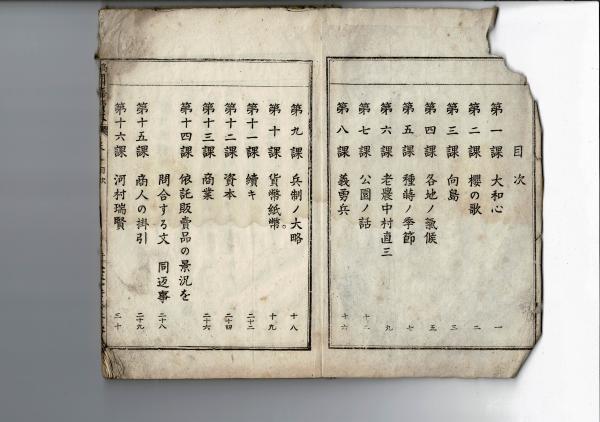 目次
第一課 大和心 一
第二課 櫻の歌 二
第三課 向島 三
第四課 各地ノ氣候 五
第五課 種蒔ノ季節 七
第六課 老農中村直三 九
第七課 公園ノ話 十二
第八課 義勇兵 十六
第九課 兵制ノ大略 十八
第十課 貨幣紙幣。 十九
第十一課 續キ 二十二
第十二課 資本 二十四
第十三課 商業 二十六
第十四課 依託販賣品の景況を
問合する文 同返事 二十八
第十五課 商人の掛引 二十九
第十六課 河村瑞賢 三十